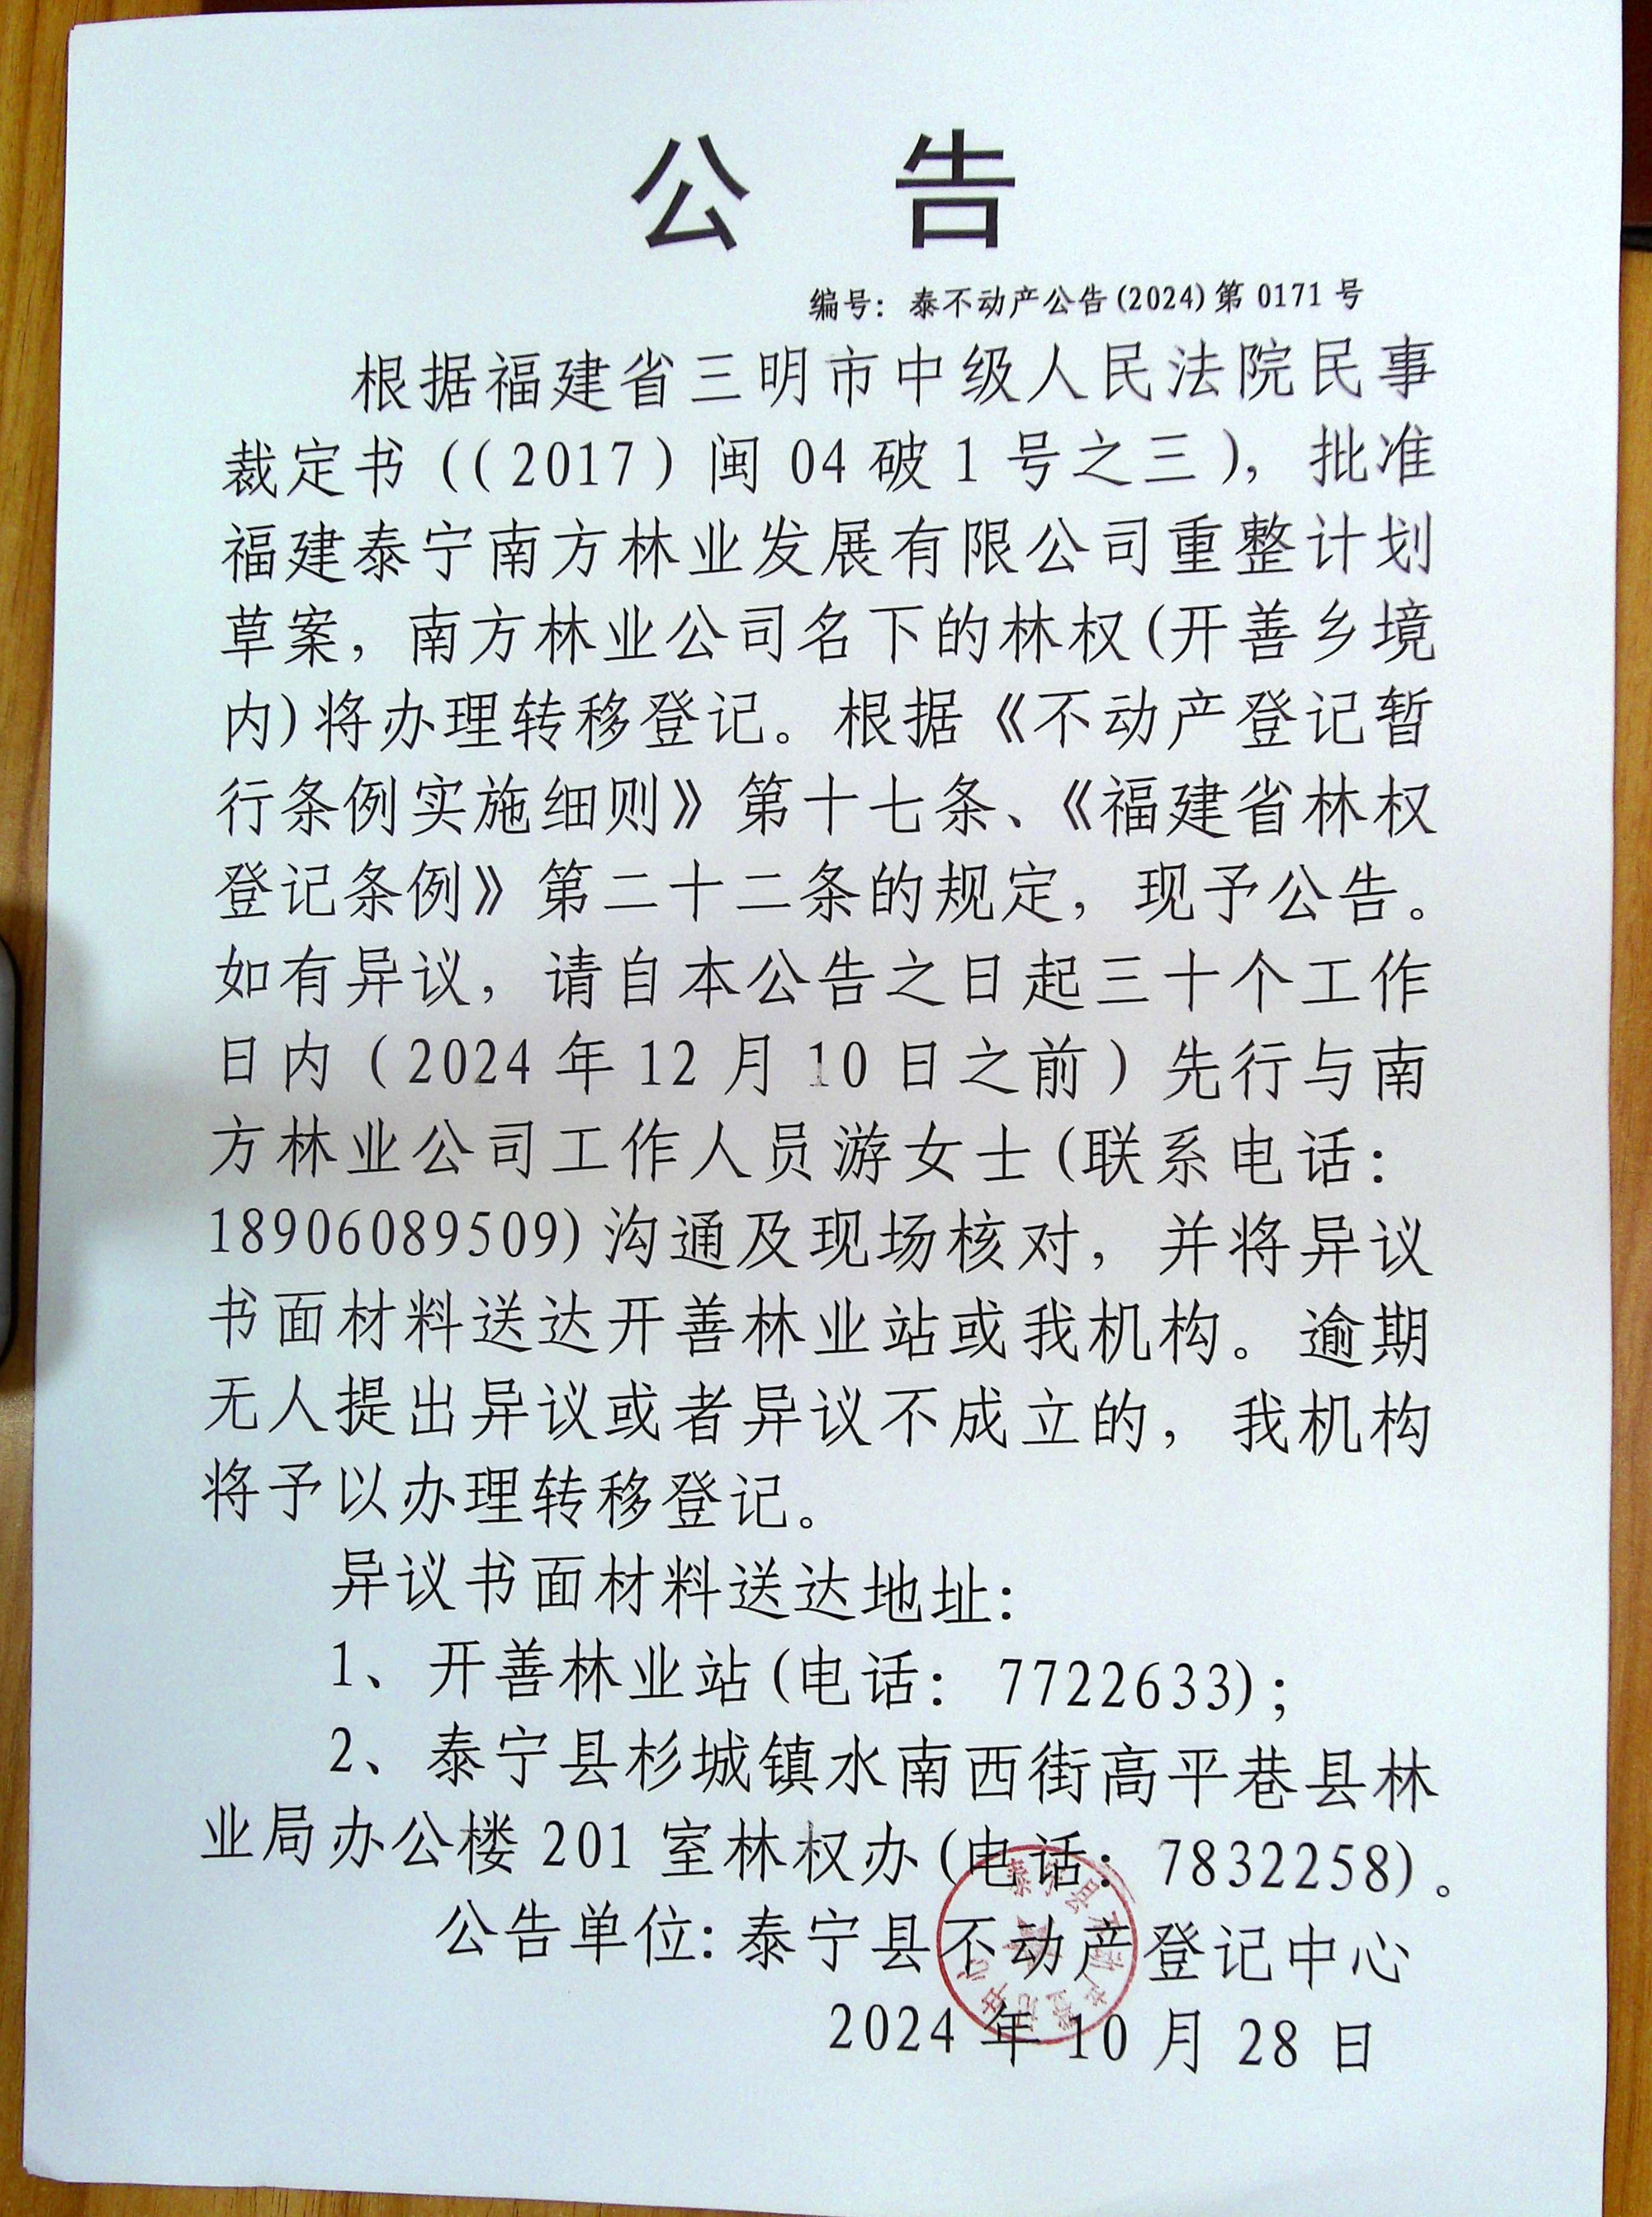 公 告
编号：泰不动产公告(2024)第 0171 号
根据福建省三明市中级人民法院民事
裁定书（(2017）闽 04 破 1 号之三），批准
福建泰宁南方林业发展有限公司重整计划
草案，南方林业公司名下的林权(开善乡境
内)将办理转移登记。根据《不动产登记暂
行条例实施细则》第十七条、《福建省林权
登记条例》第二十二条的规定，现予公告。
如有异议，请自本公告之日起三十个工作
日内（2024 年 12 月 10 日之前）先行与南
方林业公司工作人员游女士(联系电话：
18906089509)沟通及现场核对，并将异议
书面材料送达开善林业站或我机构。逾期
无人提出异议或者异议不成立的，我机构
将予以办理转移登记。
异议书面材料送达地址：
1、开善林业站(电话：7722633)；
2、泰宁县杉城镇水南西街高平巷县林
业局办公楼 201 室林权办(电话：7832258)。
公告单位：泰宁县不动产登记中心
2024 年 10 月 28 日
泰宁县不动产登记中心